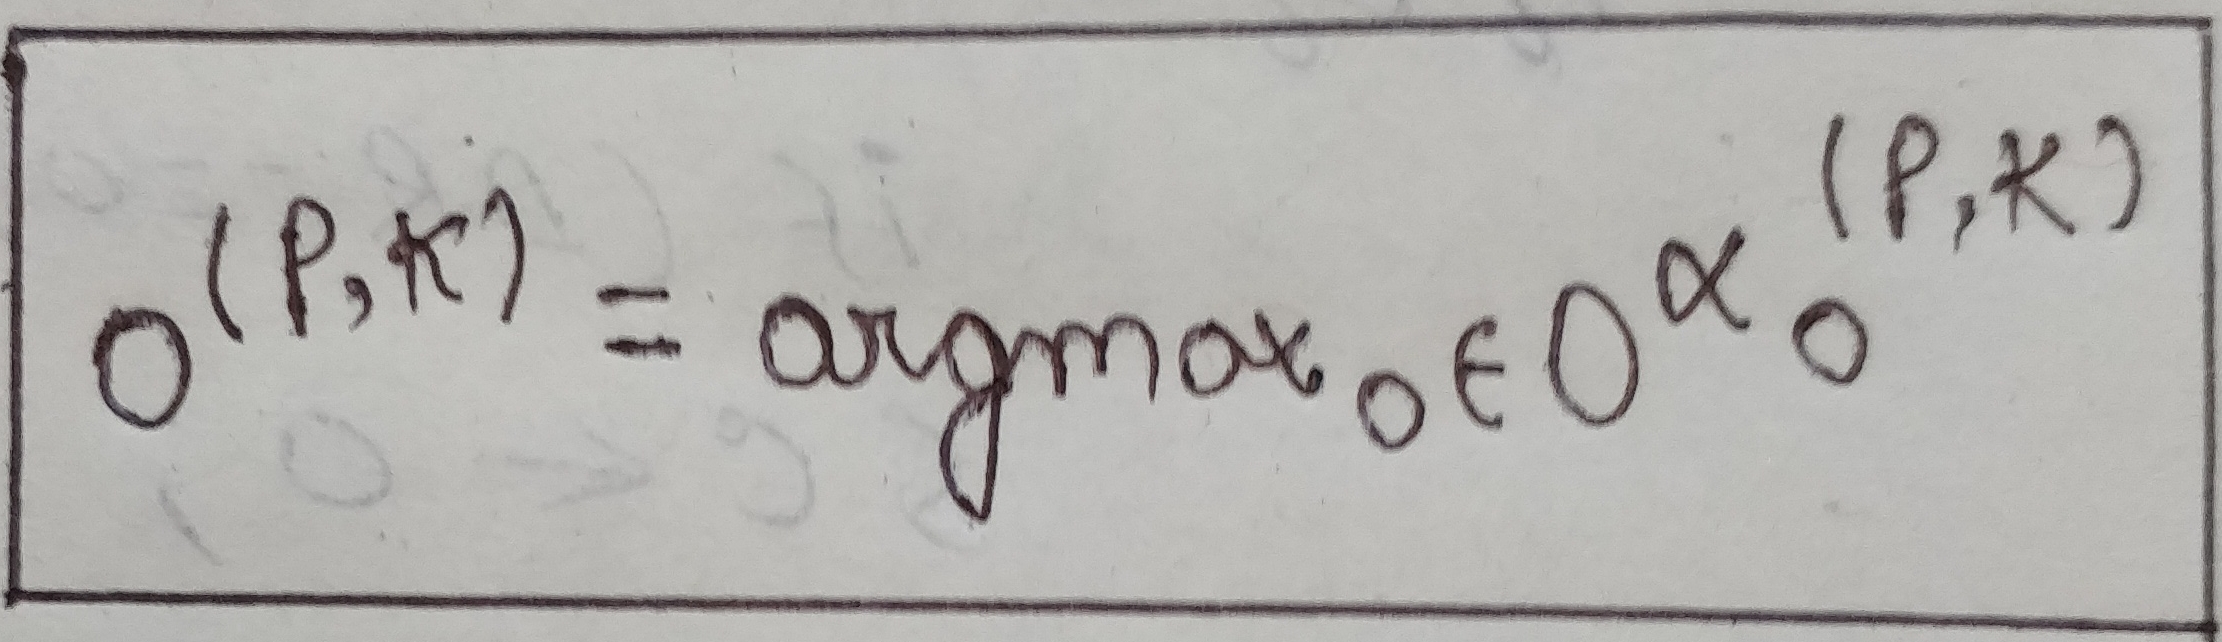 o^(P,K) = argmax_o ∈ O^α_o^(P,K)